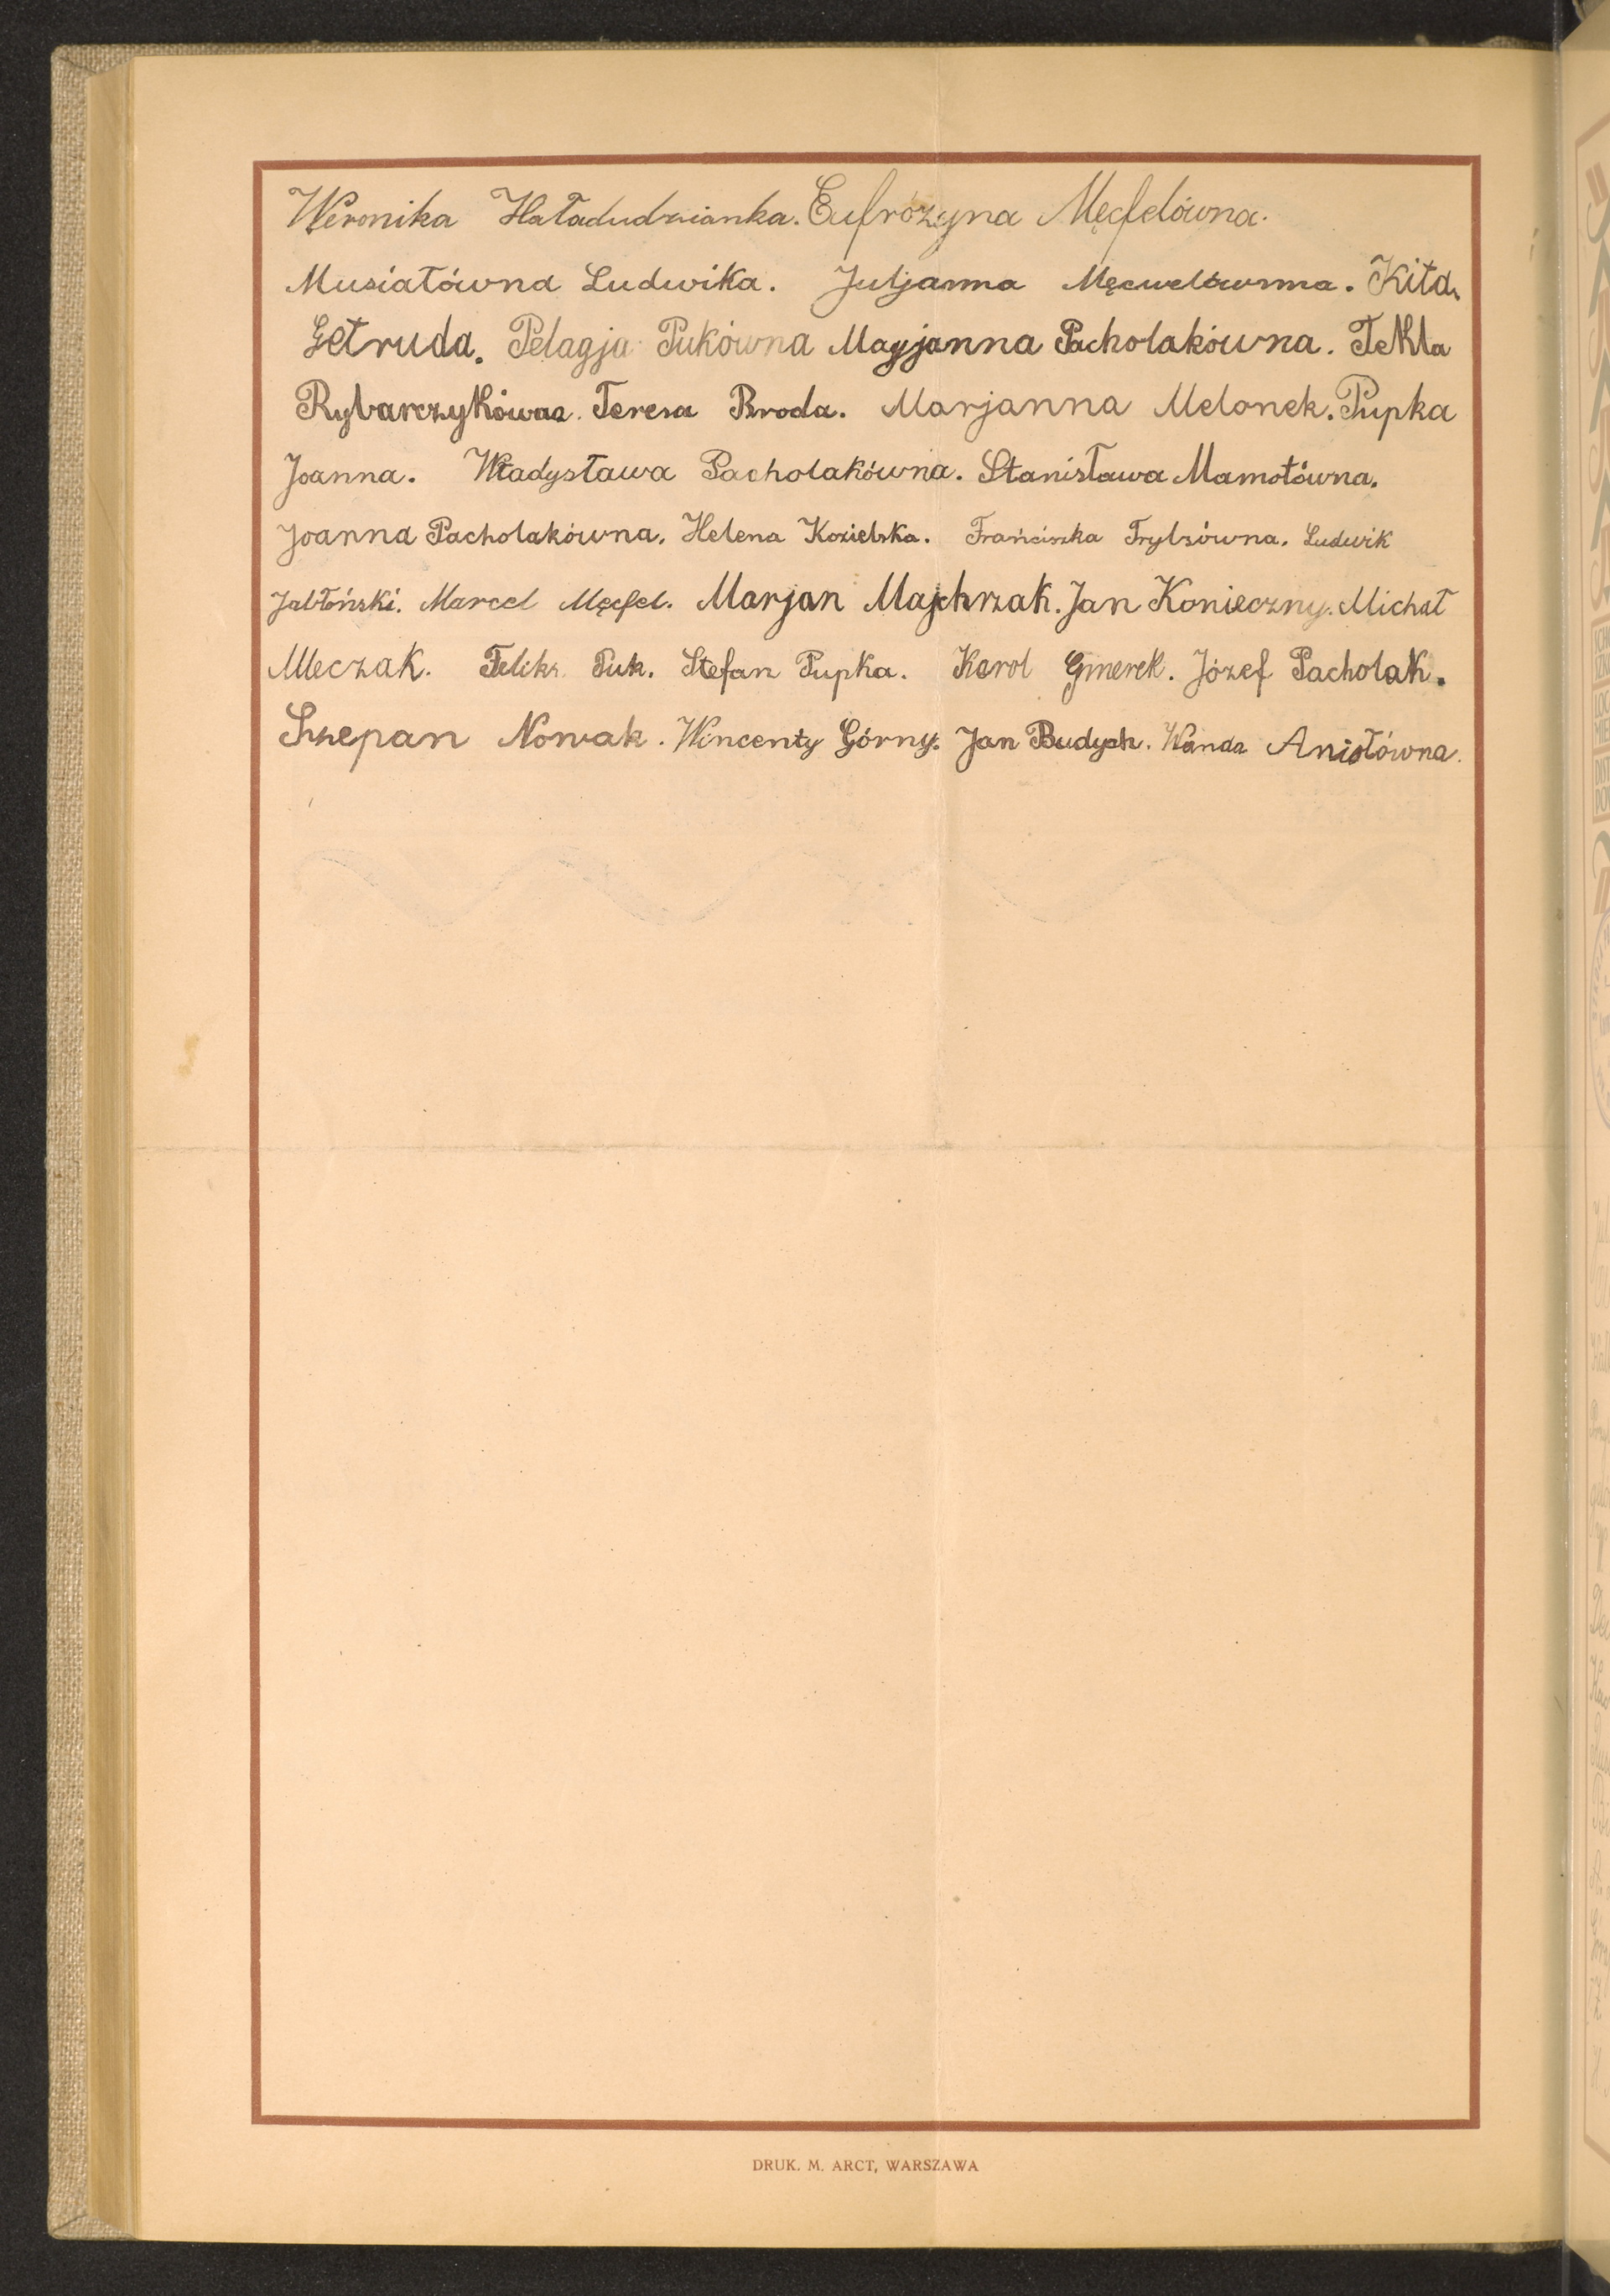 Weronika Haładudzianka. Eufrozyna Męcfelówna.
Musiałówna Ludwika. Juljanna Męcwelównna. Kita
Getruda. Pelagja Pukówna Maryjanna Pacholakówna. Tekla
Rybarczykówna. Teresa Broda. Marjanna Melonek. Pupka
Joanna. Władysława Pacholakówna. Stanisława Mamotówna.
Joanna Pacholakówna. Helena Kozielska. Frańciszka Frylzówna. Ludwik
Jabłoński. Marcel Męcfel. Marjan Majchrzak. Jan Konieczny. Michał
Mleczak. Feliks Puk. Stefan Pupka. Karol Gmerek. Józef Pacholak.
Szczepan Nowak. Wincenty Górny. Jan Budych. Wanda Aniołówna.
DRUK. M. ARCT, WARSZAWA